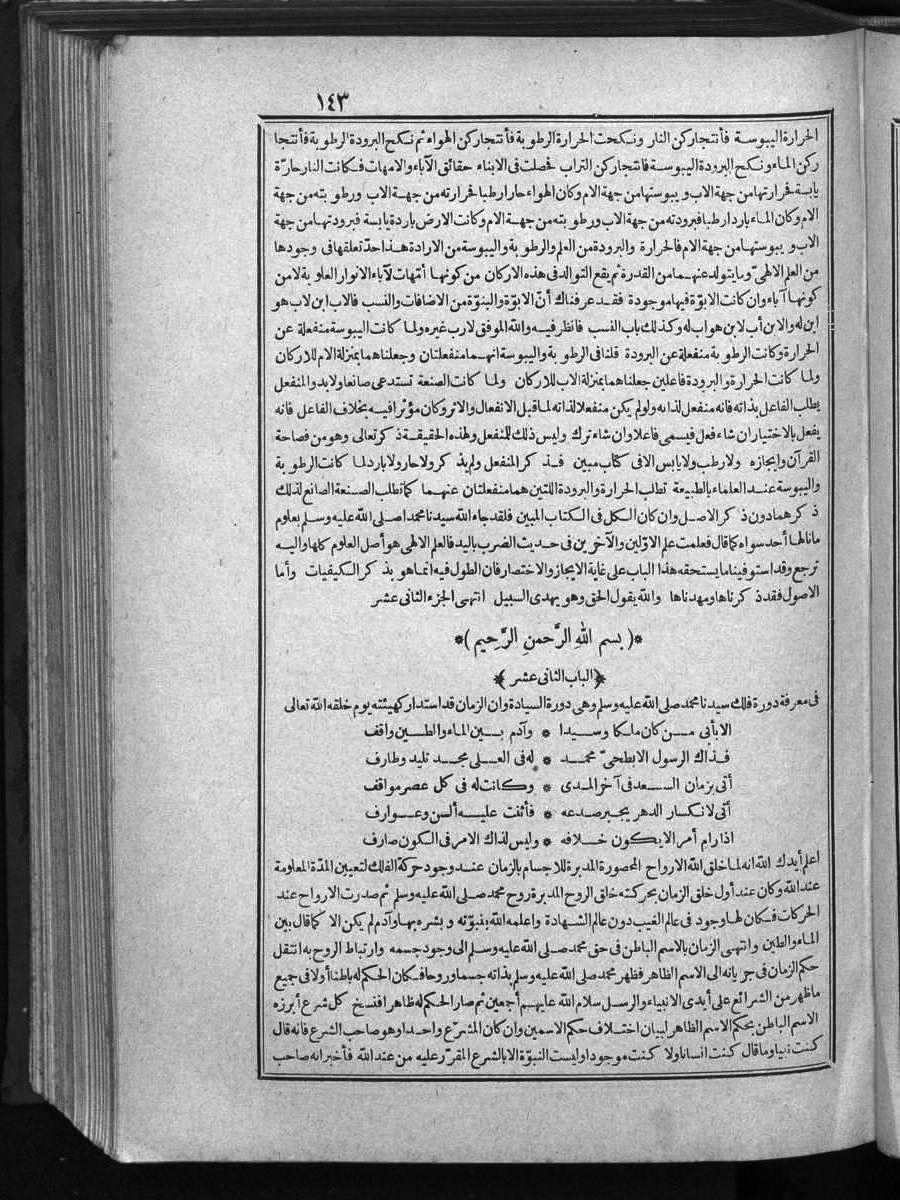 ١٤٣
الحرارة اليبوسة فأنتجا ركن النار ونكحت الحرارة الرطوبة فأنتجا ركن الهواء ثم نكح البرودة الرطوبة فأنتجا
ركن الماء ونكح البرودة اليبوسة فانتجا ركن التراب فحصلت فى الابناء حقائق الآباء والامهات فكانت النار حارّة
يابسة فحرارتها من جهة الاب ويبوستها من جهة الام وكان الهواء حارا رطبا فحرارته من جهة الاب ورطوبته من جهة
الام وكان الماء باردا رطبا فبرودته من جهة الاب ورطوبته من جهة الام وكانت الارض باردة يابسة فبرودتها من جهة
الاب ويبوستها من جهة الام فالحرارة والبرودة من العلم والرطوبة واليبوسة من الارادة هذا حدّ تعلقها فى وجودها
من العلم الالهىّ وما يتولد عنهما من القدرة ثم يقع التوالد فى هذه الاركان من كونها أمّهات لآباء الانوار العلوية لا من
كونها آباء وان كانت الابوّة فيها موجودة فقد عرفناك أنّ الابوّة والبنوّة من الاضافات والنسب فالاب ابن لاب هو
ابن له والابن أب لابن هو اب له وكذلك باب النسب فانظر فيه والله الموفق لا رب غيره ولما كانت اليبوسة منفعلة عن
الحرارة وكانت الرطوبة منفعلة عن البرودة قلنا فى الرطوبة واليبوسة انهما منفعلتان وجعلناهما بمنزلة الام للاركان
ولما كانت الحرارة والبرودة فاعلين جعلناهما بمنزلة الاب للاركان ولما كانت الصنعة تستدعى صانعا ولا بد والمنفعل
يطلب الفاعل بذاته فانه منفعل لذاته ولو لم يكن منفعلا لذاته لما قبل الانفعال والاثر وكان مؤثرا فيه بخلاف الفاعل فانه
يفعل بالاختيار ان شاء فعل فيسمى فاعلا وان شاء ترك وليس ذلك للمنفعل ولهذه الحقيقة ذكر تعالى وهو من فصاحة
القرآن وايجازه ولا رطب ولا يابس الا فى كتاب مبين فذكر المنفعل ولم يذكر ولا حار ولا بارد لما كانت الرطوبة
واليبوسة عند العلماء بالطبيعة تطلب الحرارة والبرودة اللتين هما منفعلتان عنهما كما تطلب الصنعة الصانع لذلك
ذكرهما دون ذكر الاصل وان كان الكل فى الكتاب المبين فلقد جاء الله سيدنا محمدا صلى الله عليه وسلم بعلوم
ما نالها أحد سواه كما قال فعلمت علم الاوّلين والآخرين فى حديث الضرب باليد فالعلم الالهى هو أصل العلوم كلها واليه
ترجع وقد استوفينا ما يستحقه هذا الباب على غاية الايجاز والاختصار فان الطول فيه انما هو بذكر الكيفيات وأما
الاصول فقد ذكرناها ومهدناها والله يقول الحق وهو يهدى السبيل انتهى الجزء الثانى عشر
*(بسم الله الرَّحمنِ الرَّحِيم)*
﴿الباب الثانى عشر﴾
فى معرفة دورة فلك سيدنا محمد صلى الله عليه وسلم وهى دورة السيادة وان الزمان قد استدار كهيئته يوم خلقه الله تعالى
الا بأبى من كان ملكا وسيدا * وآدم بين الماء والطين واقف
فذاك الرسول الابطحىّ محمد * له فى العلى مجد تليد وطارف
أتى بزمان السعد فى آخر المدى * وكانت له فى كل عصر مواقف
أتى لانكسار الدهر يجبر صدعه * فأثنت عليه ألسن وعوارف
اذا رام أمرا لا يكون خلافه * وليس لذاك الامر فى الكون صارف
اعلم أيدك الله انه لما خلق الله الارواح المحصورة المدبرة للاجسام بالزمان عند وجود حركة الفلك لتعيين المدّة المعلومة
عند الله وكان عند أول خلق الزمان بحركته خلق الروح المدبرة روح محمد صلى الله عليه وسلم ثم صدرت الارواح عند
الحركات فكان لها وجود فى عالم الغيب دون عالم الشهادة واعلمه الله بنبوّته وبشره بها وآدم لم يكن الا كما قال بين
الماء والطين وانتهى الزمان بالاسم الباطن فى حق محمد صلى الله عليه وسلم الى وجود جسمه وارتباط الروح به انتقل
حكم الزمان فى جريانه الى الاسم الظاهر فظهر محمد صلى الله عليه وسلم بذاته جسما وروحا فكان الحكم له باطنا أولا فى جميع
ما ظهر من الشرائع على أيدى الانبياء والرسل سلام الله عليهم أجمعين ثم صار الحكم له ظاهرا فنسخ كل شرع أبرزه
الاسم الباطن بحكم الاسم الظاهر لبيان اختلاف حكم الاسمين وان كان المشرّع واحدا وهو صاحب الشرع فانه قال
كنت نبيا وما قال كنت انسانا ولا كنت موجودا وليست النبوّة الا بالشرع المقرّر عليه من عند الله فأخبر انه صاحب